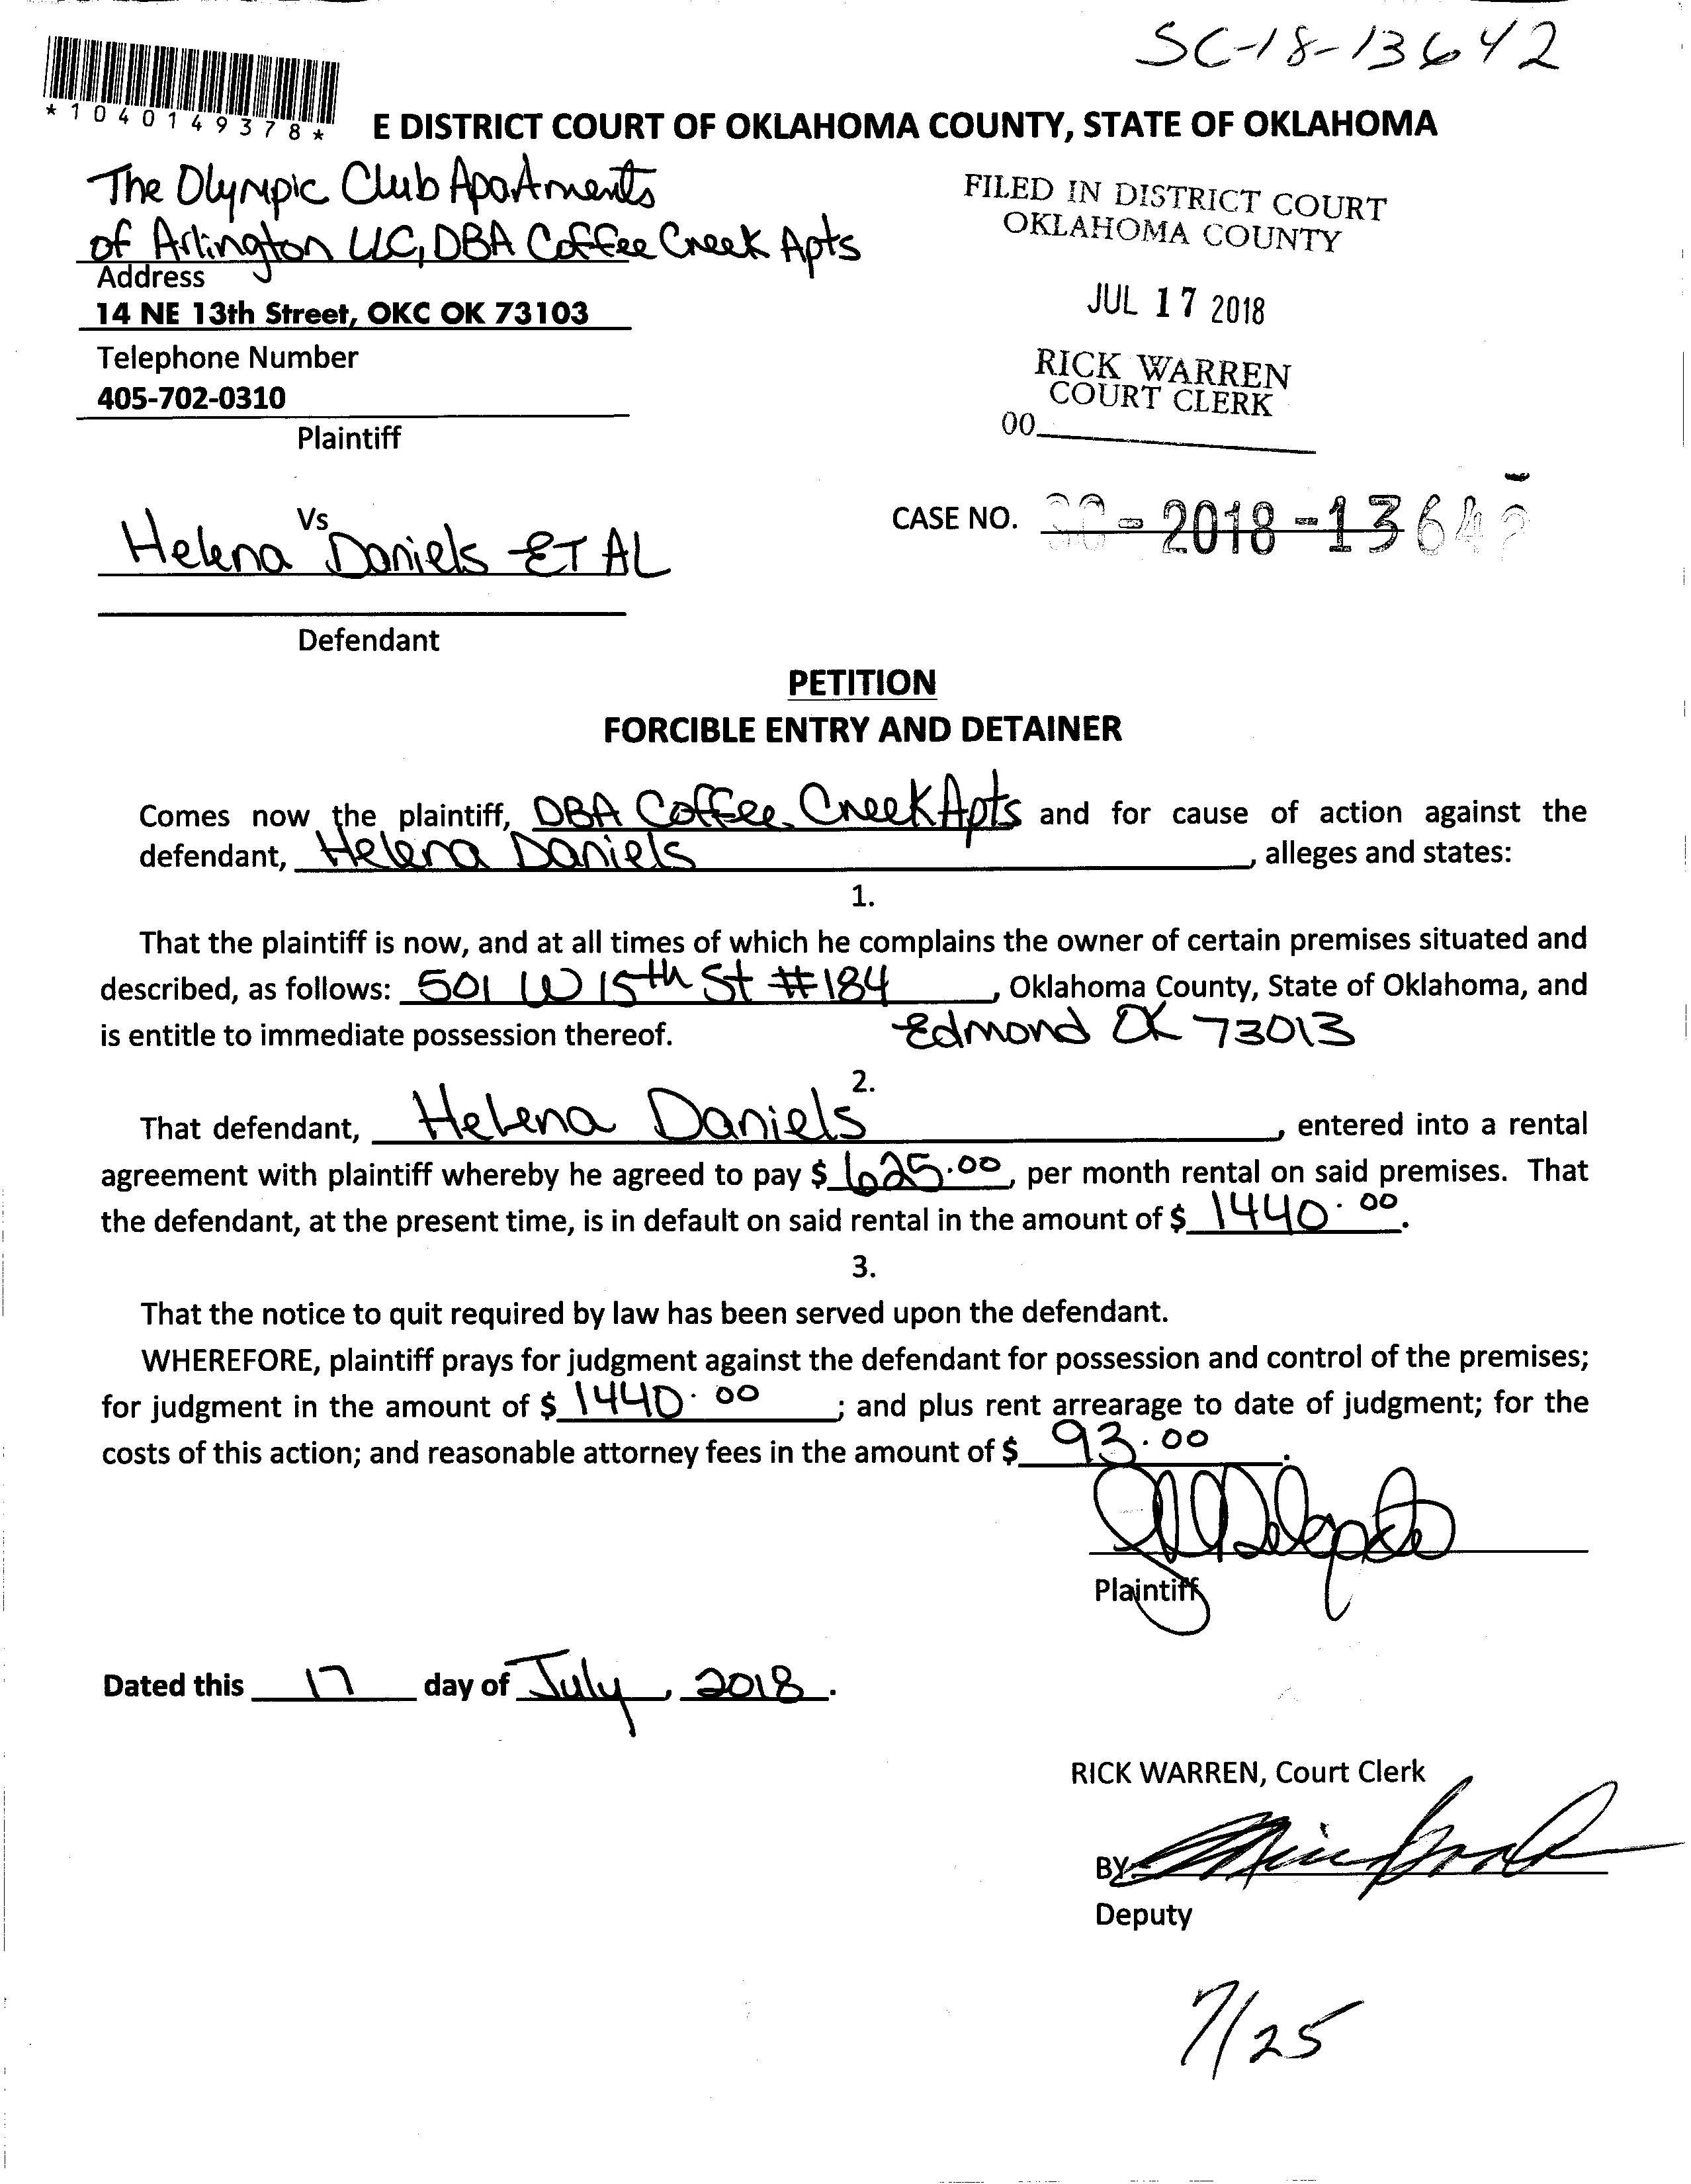 SC-18-13642
*1040149378*
E DISTRICT COURT OF OKLAHOMA COUNTY, STATE OF OKLAHOMA
The Olympic Club Apartments
of Arlington LLC, DBA Coffee Creek Apts
Address
14 NE 13th Street, OKC OK 73103
Telephone Number
405-702-0310
Plaintiff
FILED IN DISTRICT COURT
OKLAHOMA COUNTY
JUL 17 2018
RICK WARREN
COURT CLERK
00
Vs
Helena Daniels ET AL
Defendant
CASE NO. SC-2018-13642
PETITION
FORCIBLE ENTRY AND DETAINER
Comes now the plaintiff, DBA Coffee Creek Apts and for cause of action against the
defendant, Helena Daniels, alleges and states:
1.
That the plaintiff is now, and at all times of which he complains the owner of certain premises situated and
described, as follows: 501 W 15th St #184, Oklahoma County, State of Oklahoma, and
is entitle to immediate possession thereof. Edmond OK 73013
2.
That defendant, Helena Daniels, entered into a rental
agreement with plaintiff whereby he agreed to pay $ 625.00, per month rental on said premises. That
the defendant, at the present time, is in default on said rental in the amount of $ 1440.00.
3.
That the notice to quit required by law has been served upon the defendant.
WHEREFORE, plaintiff prays for judgment against the defendant for possession and control of the premises;
for judgment in the amount of $ 1440.00; and plus rent arrearage to date of judgment; for the
costs of this action; and reasonable attorney fees in the amount of $ 93.00.
Plaintiff
Dated this 17 day of July, 2018.
RICK WARREN, Court Clerk
BY
Deputy
7/25